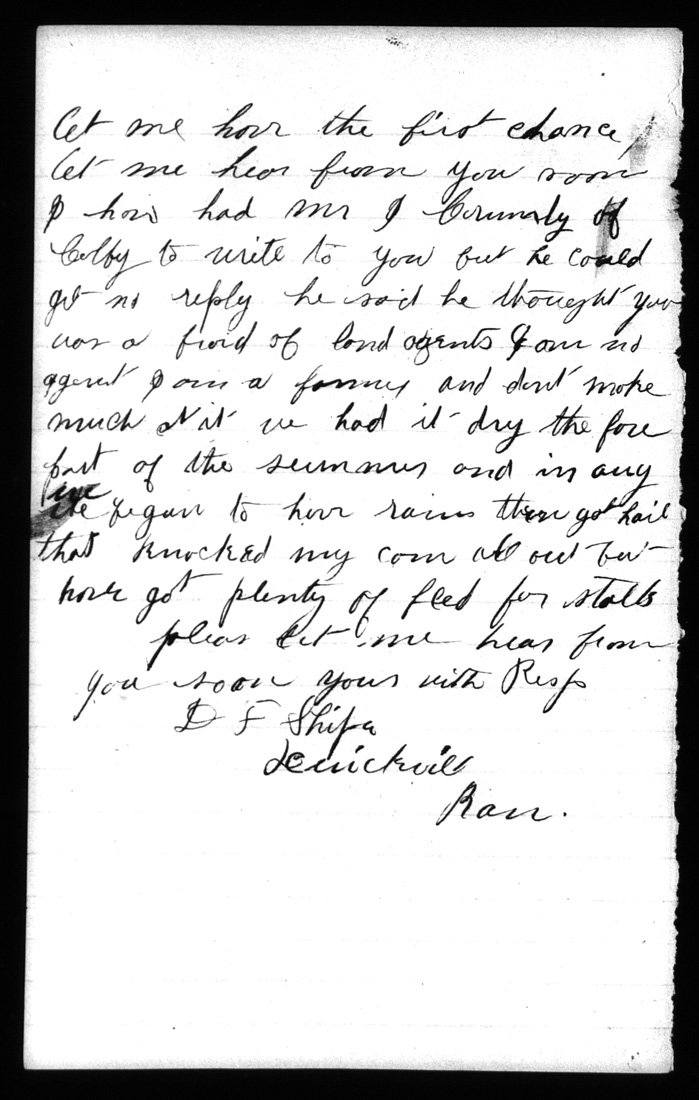 let me have the first chance
let me hear from you soon
I have had Mr J of
Colby to write to you but he could
get no reply he said he thought you
was a fraid of land agents I am no
agent I am a farmer and dont make
much at it we had it dry the fore
part of the summer and in aug
we began to have rains then got hail
that knocked my corn all out but
have got plenty of feed for stalk
pleas let me hear from
you soon yours with Resp
D F
Kan.